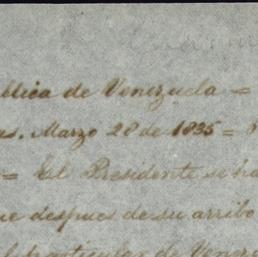 blica de Venezuela =
as. Marzo 28 de 1835 =
= El Presidente se ha
ue despues de su arribo
el particular de Venezu